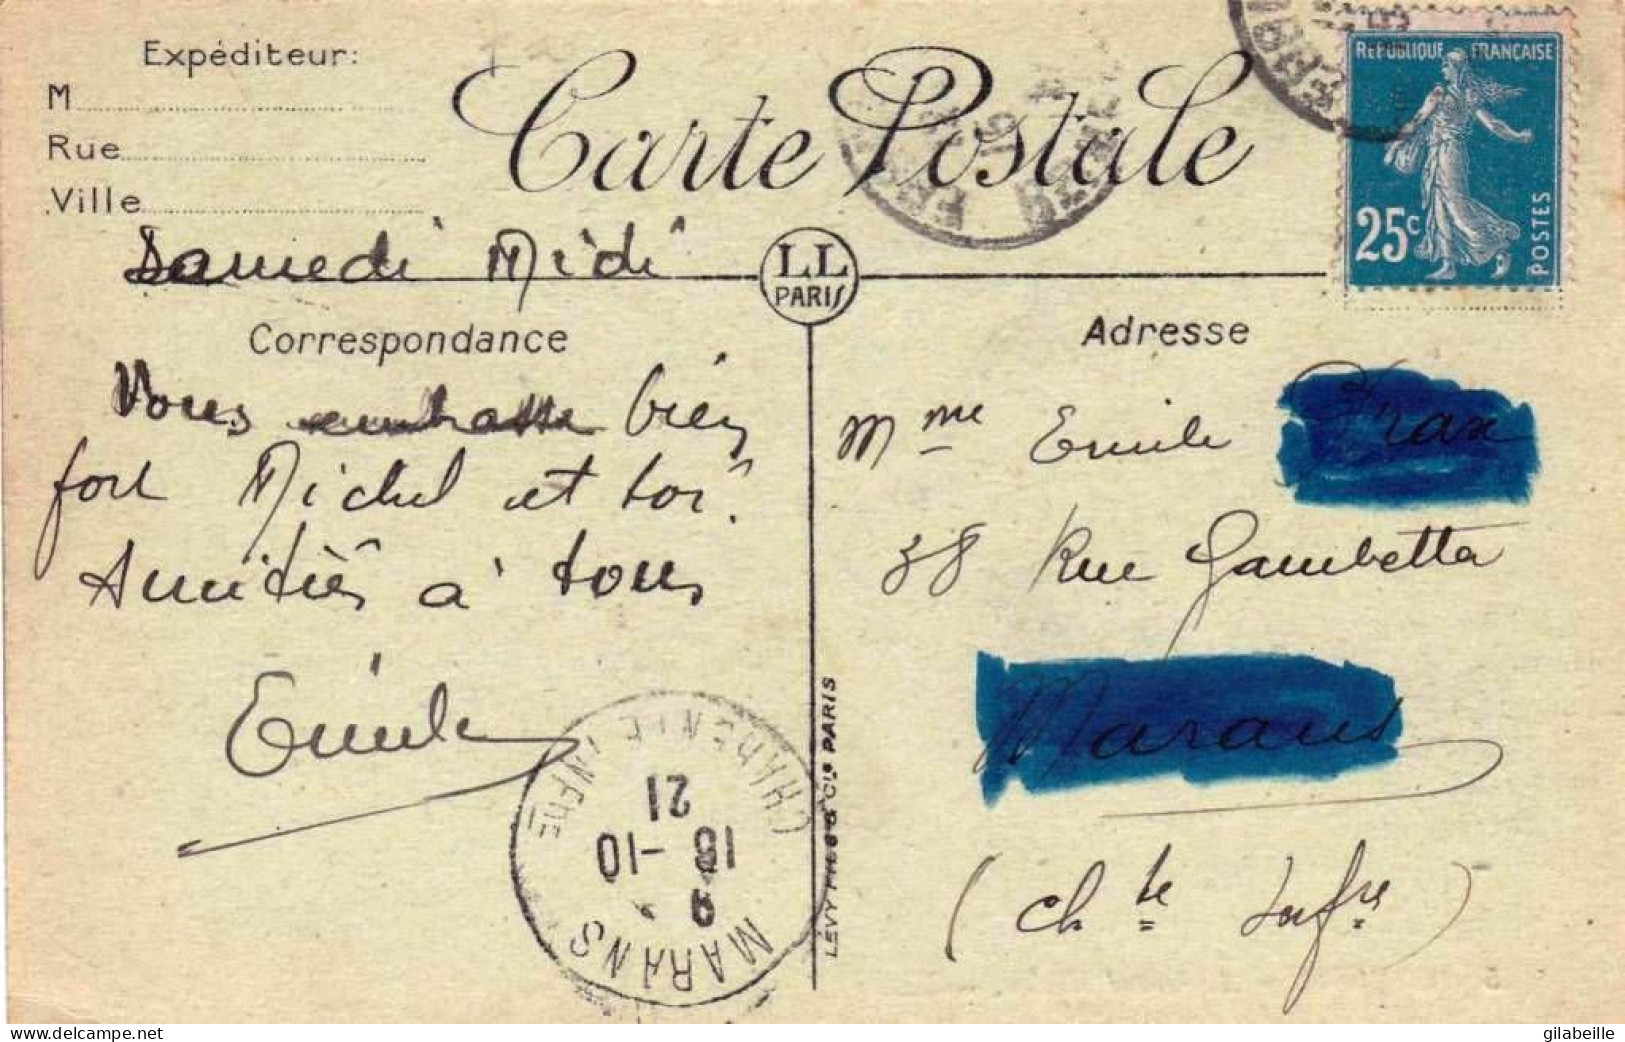 Expéditeur:
M
Rue
Ville
Carte Postale
RÉPUBLIQUE FRANÇAISE
25c
POSTES
Samedi Midi
LL
PARIS
Correspondance
Adresse
Vous embrasse bien
fort Michel et toi.
Amitiés à tous
Emile
Mme Emile
38 Rue Gambetta
Marans
(Chte Infre)
LÉVY FILS & Cie PARIS
MARANS
CHARENTE INFRE
9
18-10
21
delcampe.net
gilabeille